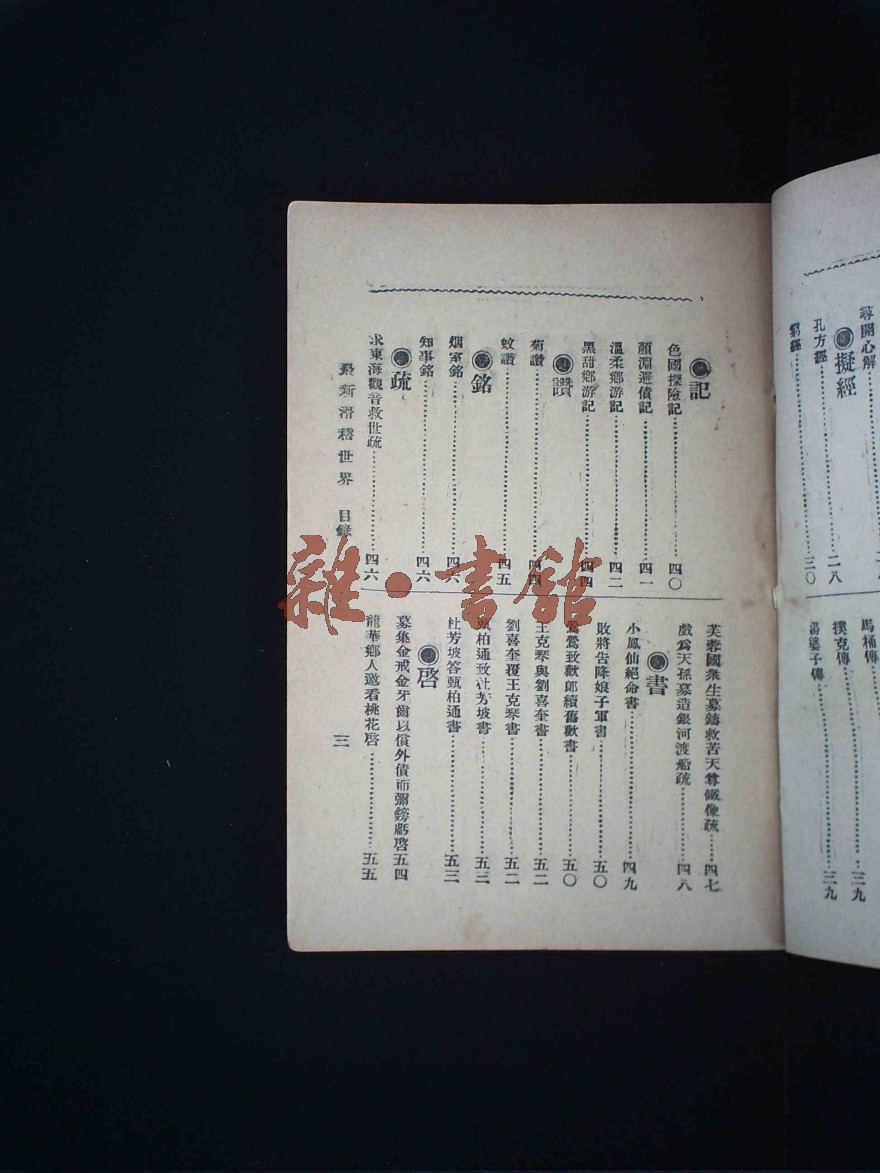 尋開心解
擬經
窮經 三〇
孔方經 二八
馬桶傳
撲克傳 三九
湯婆子傳 三九
記
色國探險記 四〇
顏淵避債記 四一
溫柔鄉游記 四二
黑甜鄉游記 四四
讚
菊讚 四四
蚊讚 四五
銘
烟室銘 四六
知事銘 四六
疏
求東海觀音救世疏 四六
芙蓉國衆生募鑄救苦天尊鐵像疏 四七
戲爲天孫募造銀河渡船疏 四八
書
小鳳仙絕命書 四九
敗將告降娘子軍書 五〇
鶯鶯致歡郎續舊歡書 五〇
王克琴與劉喜奎書 五二
劉喜奎覆王克琴書 五二
甄柏通致杜芳坡書 五三
杜芳坡答甄柏通書 五三
啓
募集金戒金牙齒以償外債而彌鎊虧啓 五四
龍華鄉人邀看桃花啓 五五
最新滑稽世界 目錄 三
雜·書館